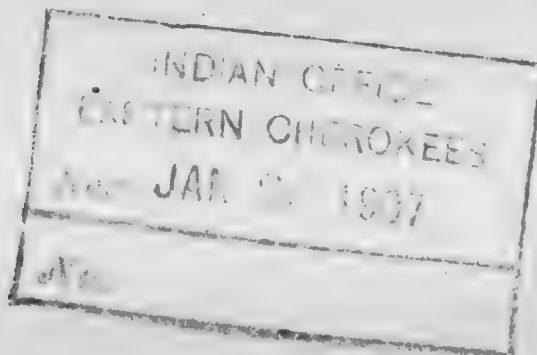 INDIAN OFFICE
EASTERN CHEROKEES
JAN 1907
No.